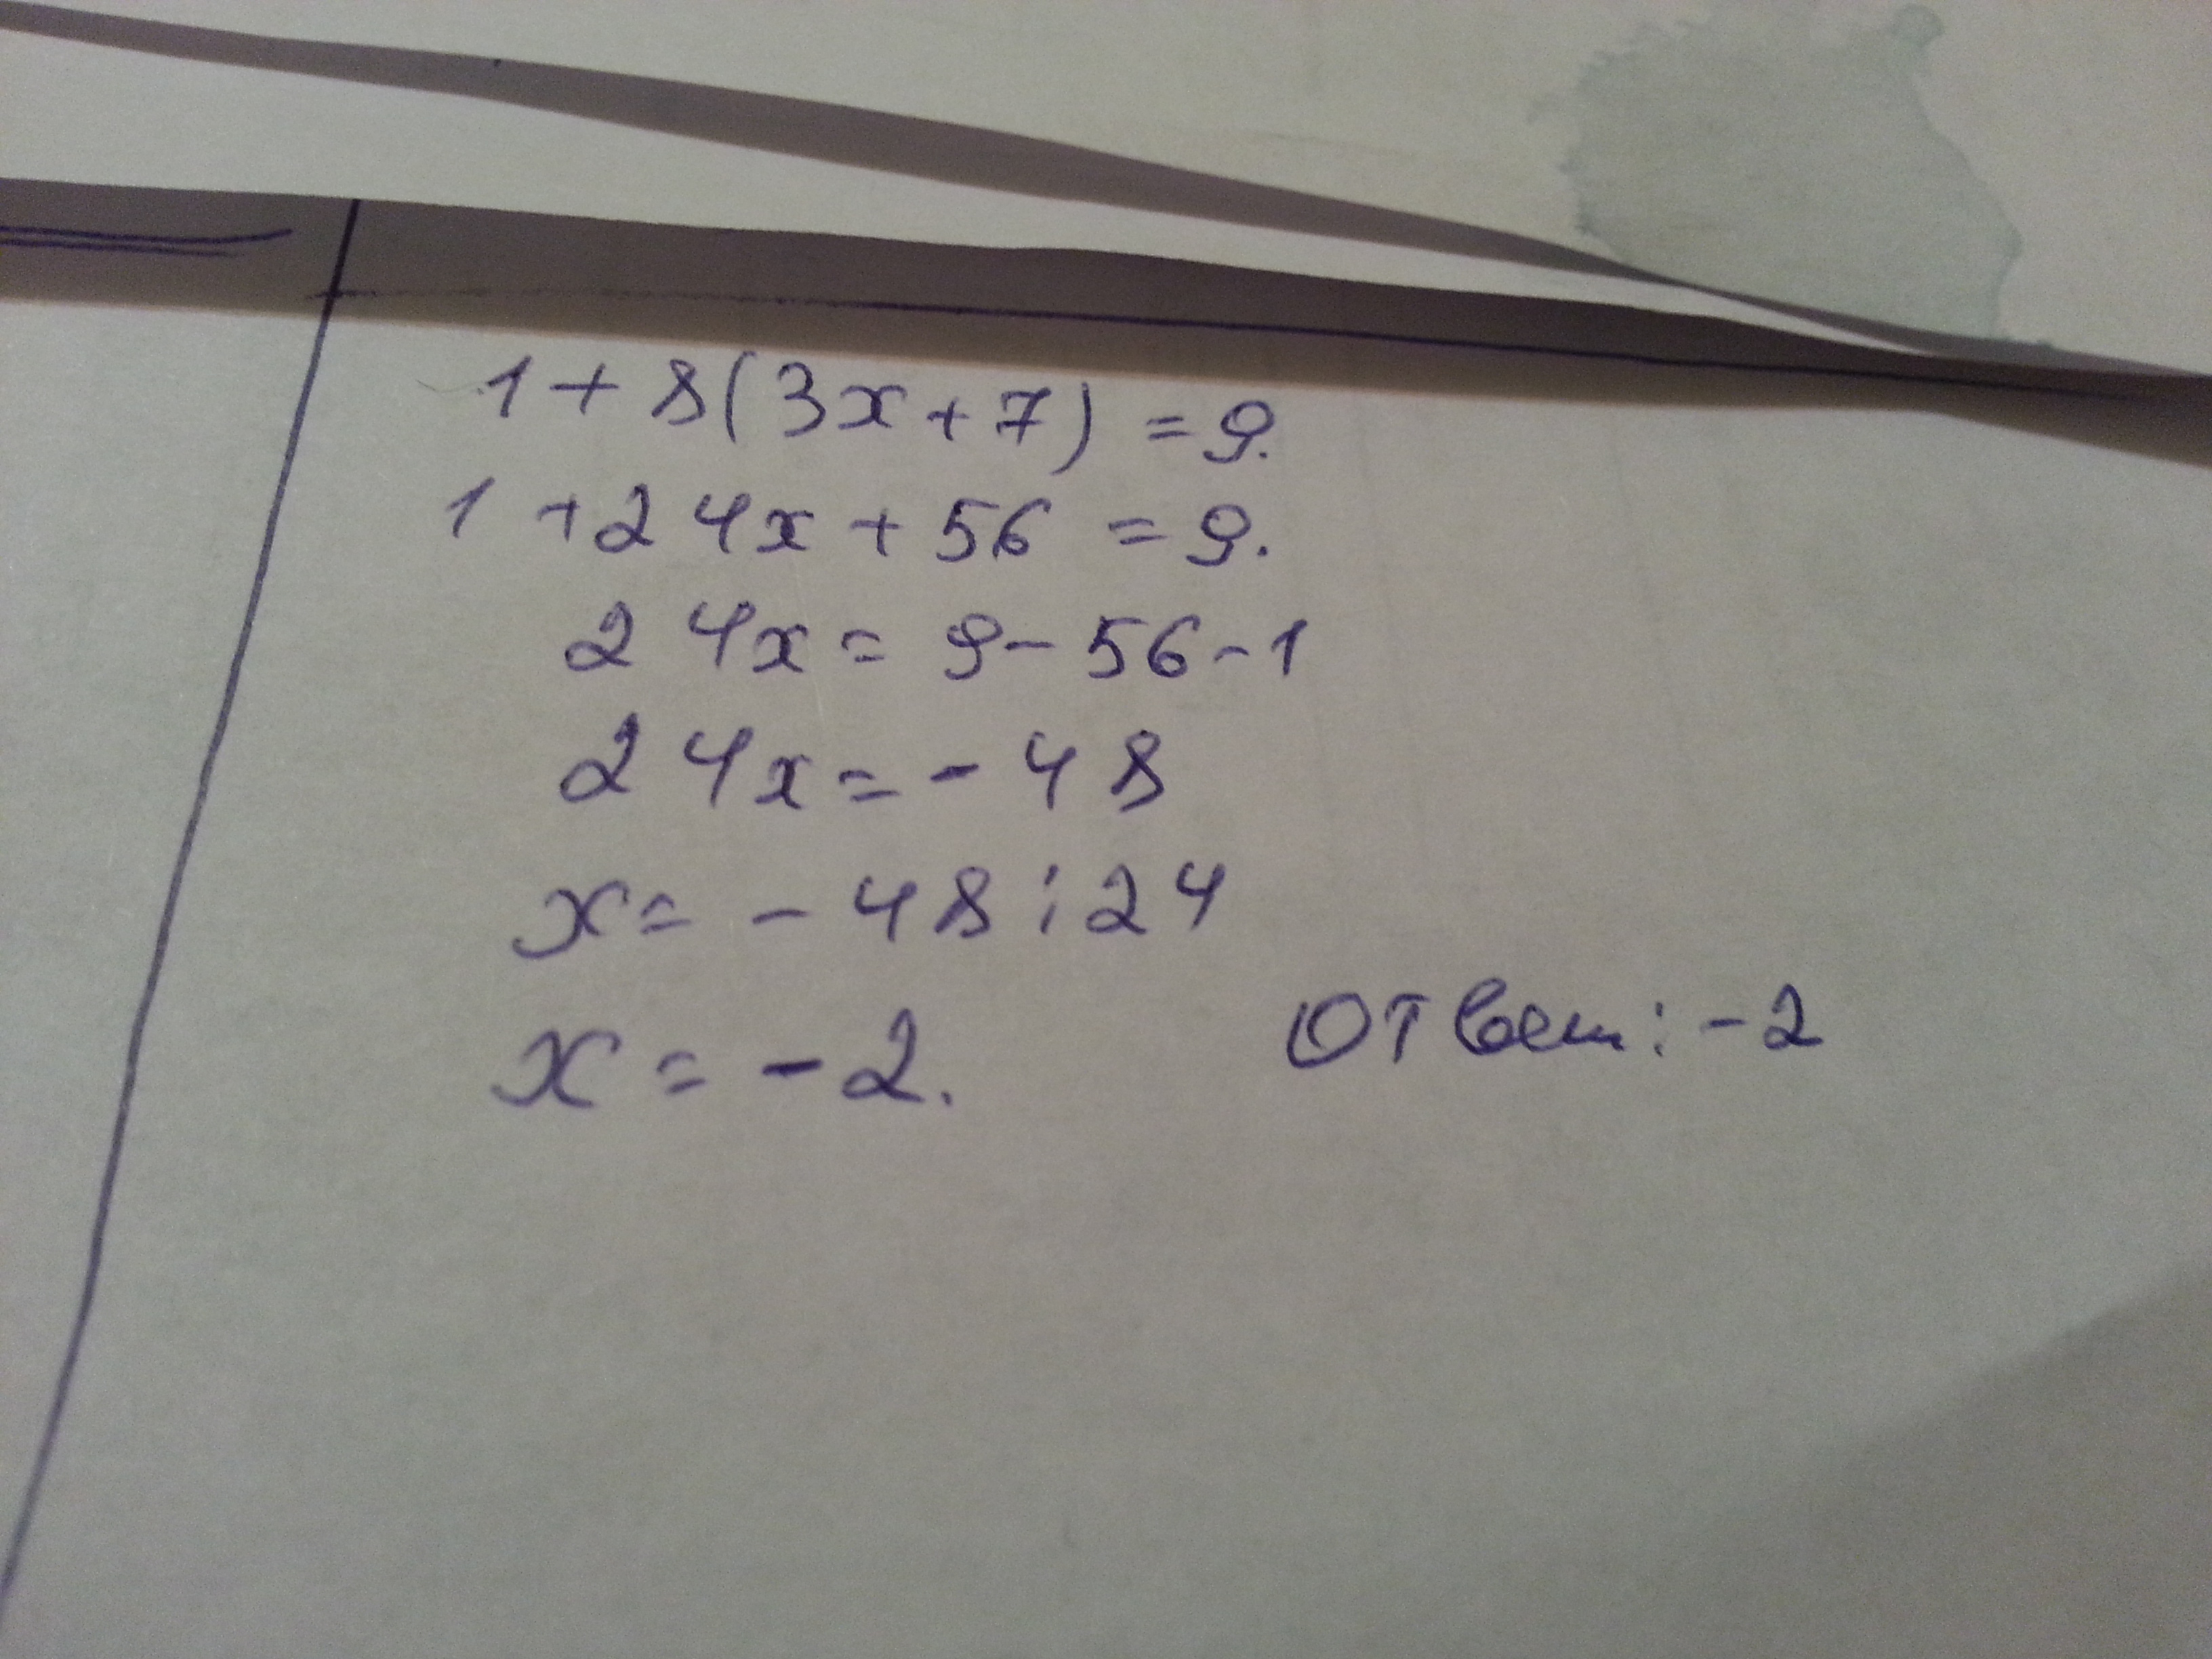 1 + 8(3x + 7) = 9.
1 + 24x + 56 = 9.
24x = 9 - 56 - 1
24x = - 48
x = - 48 : 24
x = - 2.
Ответ: - 2